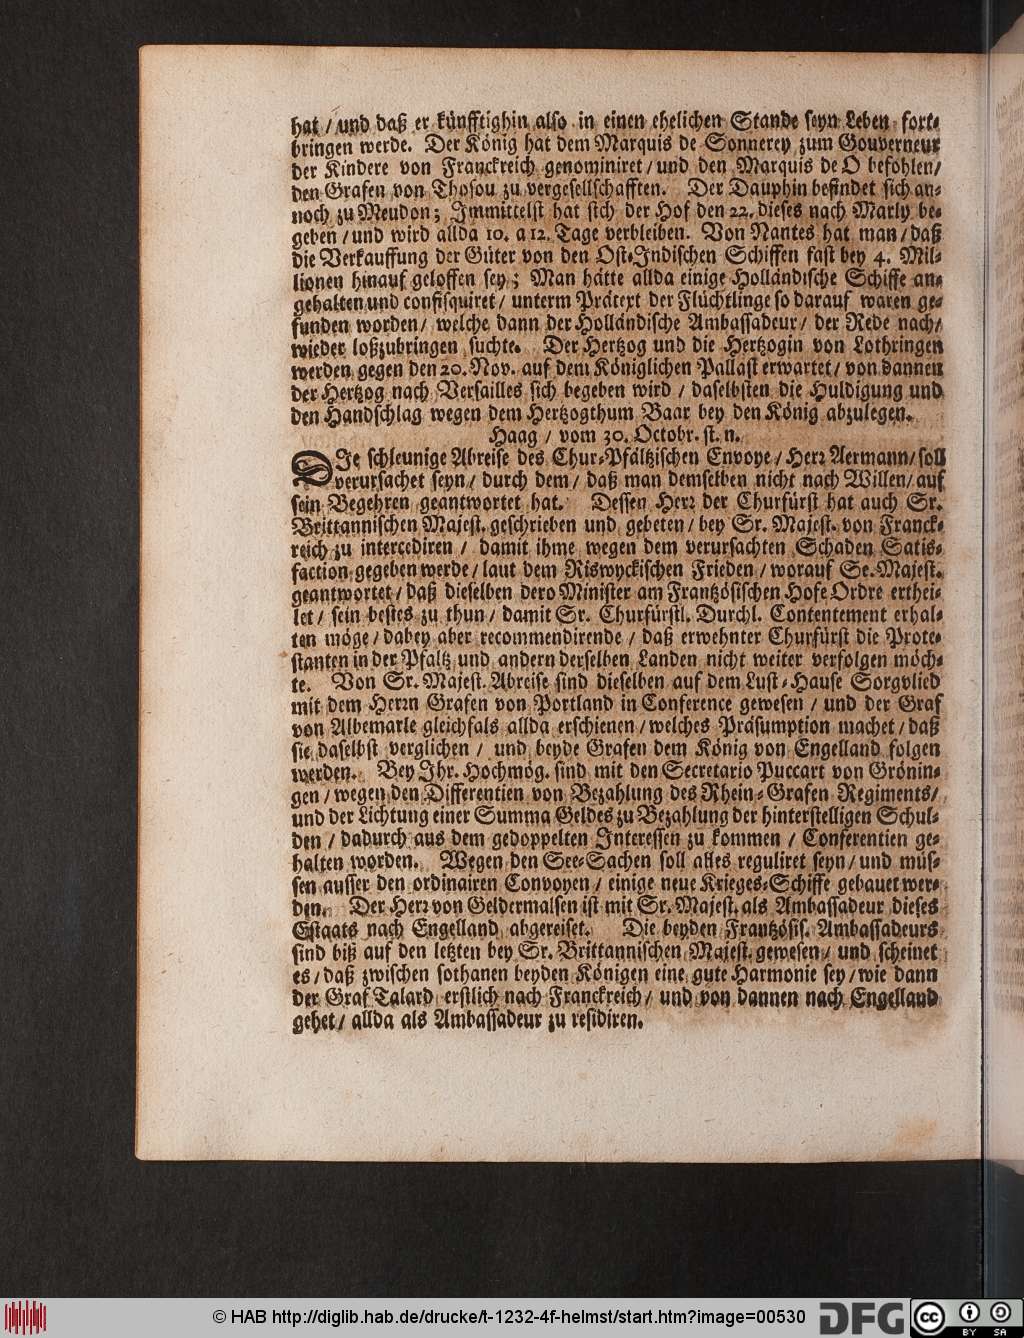 hat / und daß er künfftighin also in einen ehelichen Stande seyn Leben fort-
bringen werde. Der König hat dem Marquis de Sonnerey zum Gouverneur
der Kindere von Franckreich genominiret / und den Marquis de O befohlen /
den Grafen von Thosou zu vergesellschafften. Der Dauphin befindet sich an-
noch zu Meudon; Immittelst hat sich der Hof den 22. dieses nach Marly be-
geben / und wird allda 10. a 12. Tage verbleiben. Von Nantes hat man / daß
die Verkauffung der Güter von den Ost-Indischen Schiffen fast bey 4. Mil-
lionen hinauf geloffen sey; Man hätte allda einige Holländische Schiffe an-
gehalten und confisquiret / unterm Prätext der Flüchtlinge so darauf waren ge-
funden worden / welche dann der Holländische Ambassadeur / der Rede nach /
wieder loßzubringen suchte. Der Hertzog und die Hertzogin von Lothringen
werden gegen den 20. Nov. auf dem Königlichen Pallast erwartet / von dannen
der Hertzog nach Versailles sich begeben wird / daselbsten die Huldigung und
den Handschlag wegen dem Hertzogthum Baar bey den König abzulegen.
Haag / vom 30. Octobr. st. n.
DIe schleunige Abreise des Chur-Pfältzischen Envoye / Herr Aermann / soll
verursachet seyn / durch dem / daß man demselben nicht nach Willen / auf
sein Begehren geantwortet hat. Dessen Herr der Churfürst hat auch Sr.
Brittannischen Majest. geschrieben und gebeten / bey Sr. Majest. von Franck-
reich zu intercediren / damit ihme wegen dem verursachten Schaden Satis-
faction gegeben werde / laut dem Riswyckischen Frieden / worauf Se. Majest.
geantwortet / daß dieselben dero Minister am Frantzösischen Hofe Ordre erthei-
let / sein bestes zu thun / damit Sr. Churfürstl. Durchl. Contentement erhal-
ten möge / dabey aber recommendirende / daß erwehnter Churfürst die Prote-
stanten in der Pfaltz und andern derselben Landen nicht weiter verfolgen möch-
te. Von Sr. Majest. Abreise sind dieselben auf dem Lust-Hause Sorgvlied
mit dem Herrn Grafen von Portland in Conference gewesen / und der Graf
von Albemarle gleichfals allda erschienen / welches Präsumption machet / daß
sie daselbst verglichen / und beyde Grafen dem König von Engelland folgen
werden. Bey Ihr. Hochmög. sind mit den Secretario Puccart von Grönin-
gen / wegen den Differentien von Bezahlung des Rhein-Grafen Regiments /
und der Lichtung einer Summa Geldes zu Bezahlung der hinterstelligen Schul-
den / dadurch aus dem gedoppelten Interessen zu kommen / Conferentien ge-
halten worden. Wegen den See-Sachen soll alles reguliret seyn / und müs-
sen ausser den ordinairen Convoyen / einige neue Krieges-Schiffe gebauet wer-
den. Der Herr von Geldermalsen ist mit Sr. Majest. als Ambassadeur dieses
Estaats nach Engelland abgereiset. Die beyden Frantzösis. Ambassadeurs
sind biß auf den letzten bey Sr. Brittannischen Majest. gewesen / und scheinet
es / daß zwischen sothanen beyden Königen eine gute Harmonie sey / wie dann
der Graf Talard erstlich nach Franckreich / und von dannen nach Engelland
gehet / allda als Ambassadeur zu residiren.
© HAB http://diglib.hab.de/drucke/t-1232-4f-helmst/start.htm?image=00530
DFG
cc BY SA